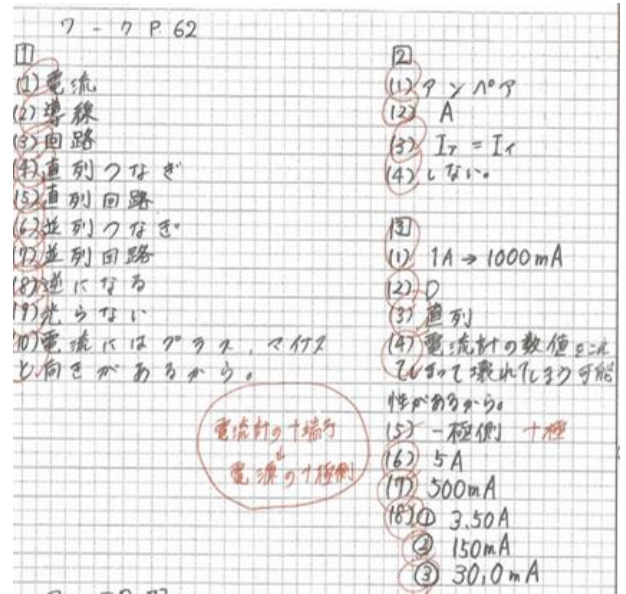 ワーク P.62
1
(1)電流
(2)導線
(3)回路
(4)直列つなぎ
(5)直列回路
(6)並列つなぎ
(7)並列回路
(8)逆になる
(9)光らない
(10)電流にはプラス、マイナス
と向きがあるから。
電流計の+端子
↓
電源の+極側
2
(1)アンペア
(2) A
(3) Iア = Iイ
(4)しない。
3
(1) 1A→1000mA
(2) D
(3) 直列
(4) 電流計の数値をこえ
てしまって壊れてしまう可能
性があるから。
(5) -極側 +極
(6) 5A
(7) 500mA
(8)① 3.50A
② 150mA
③ 30.0mA